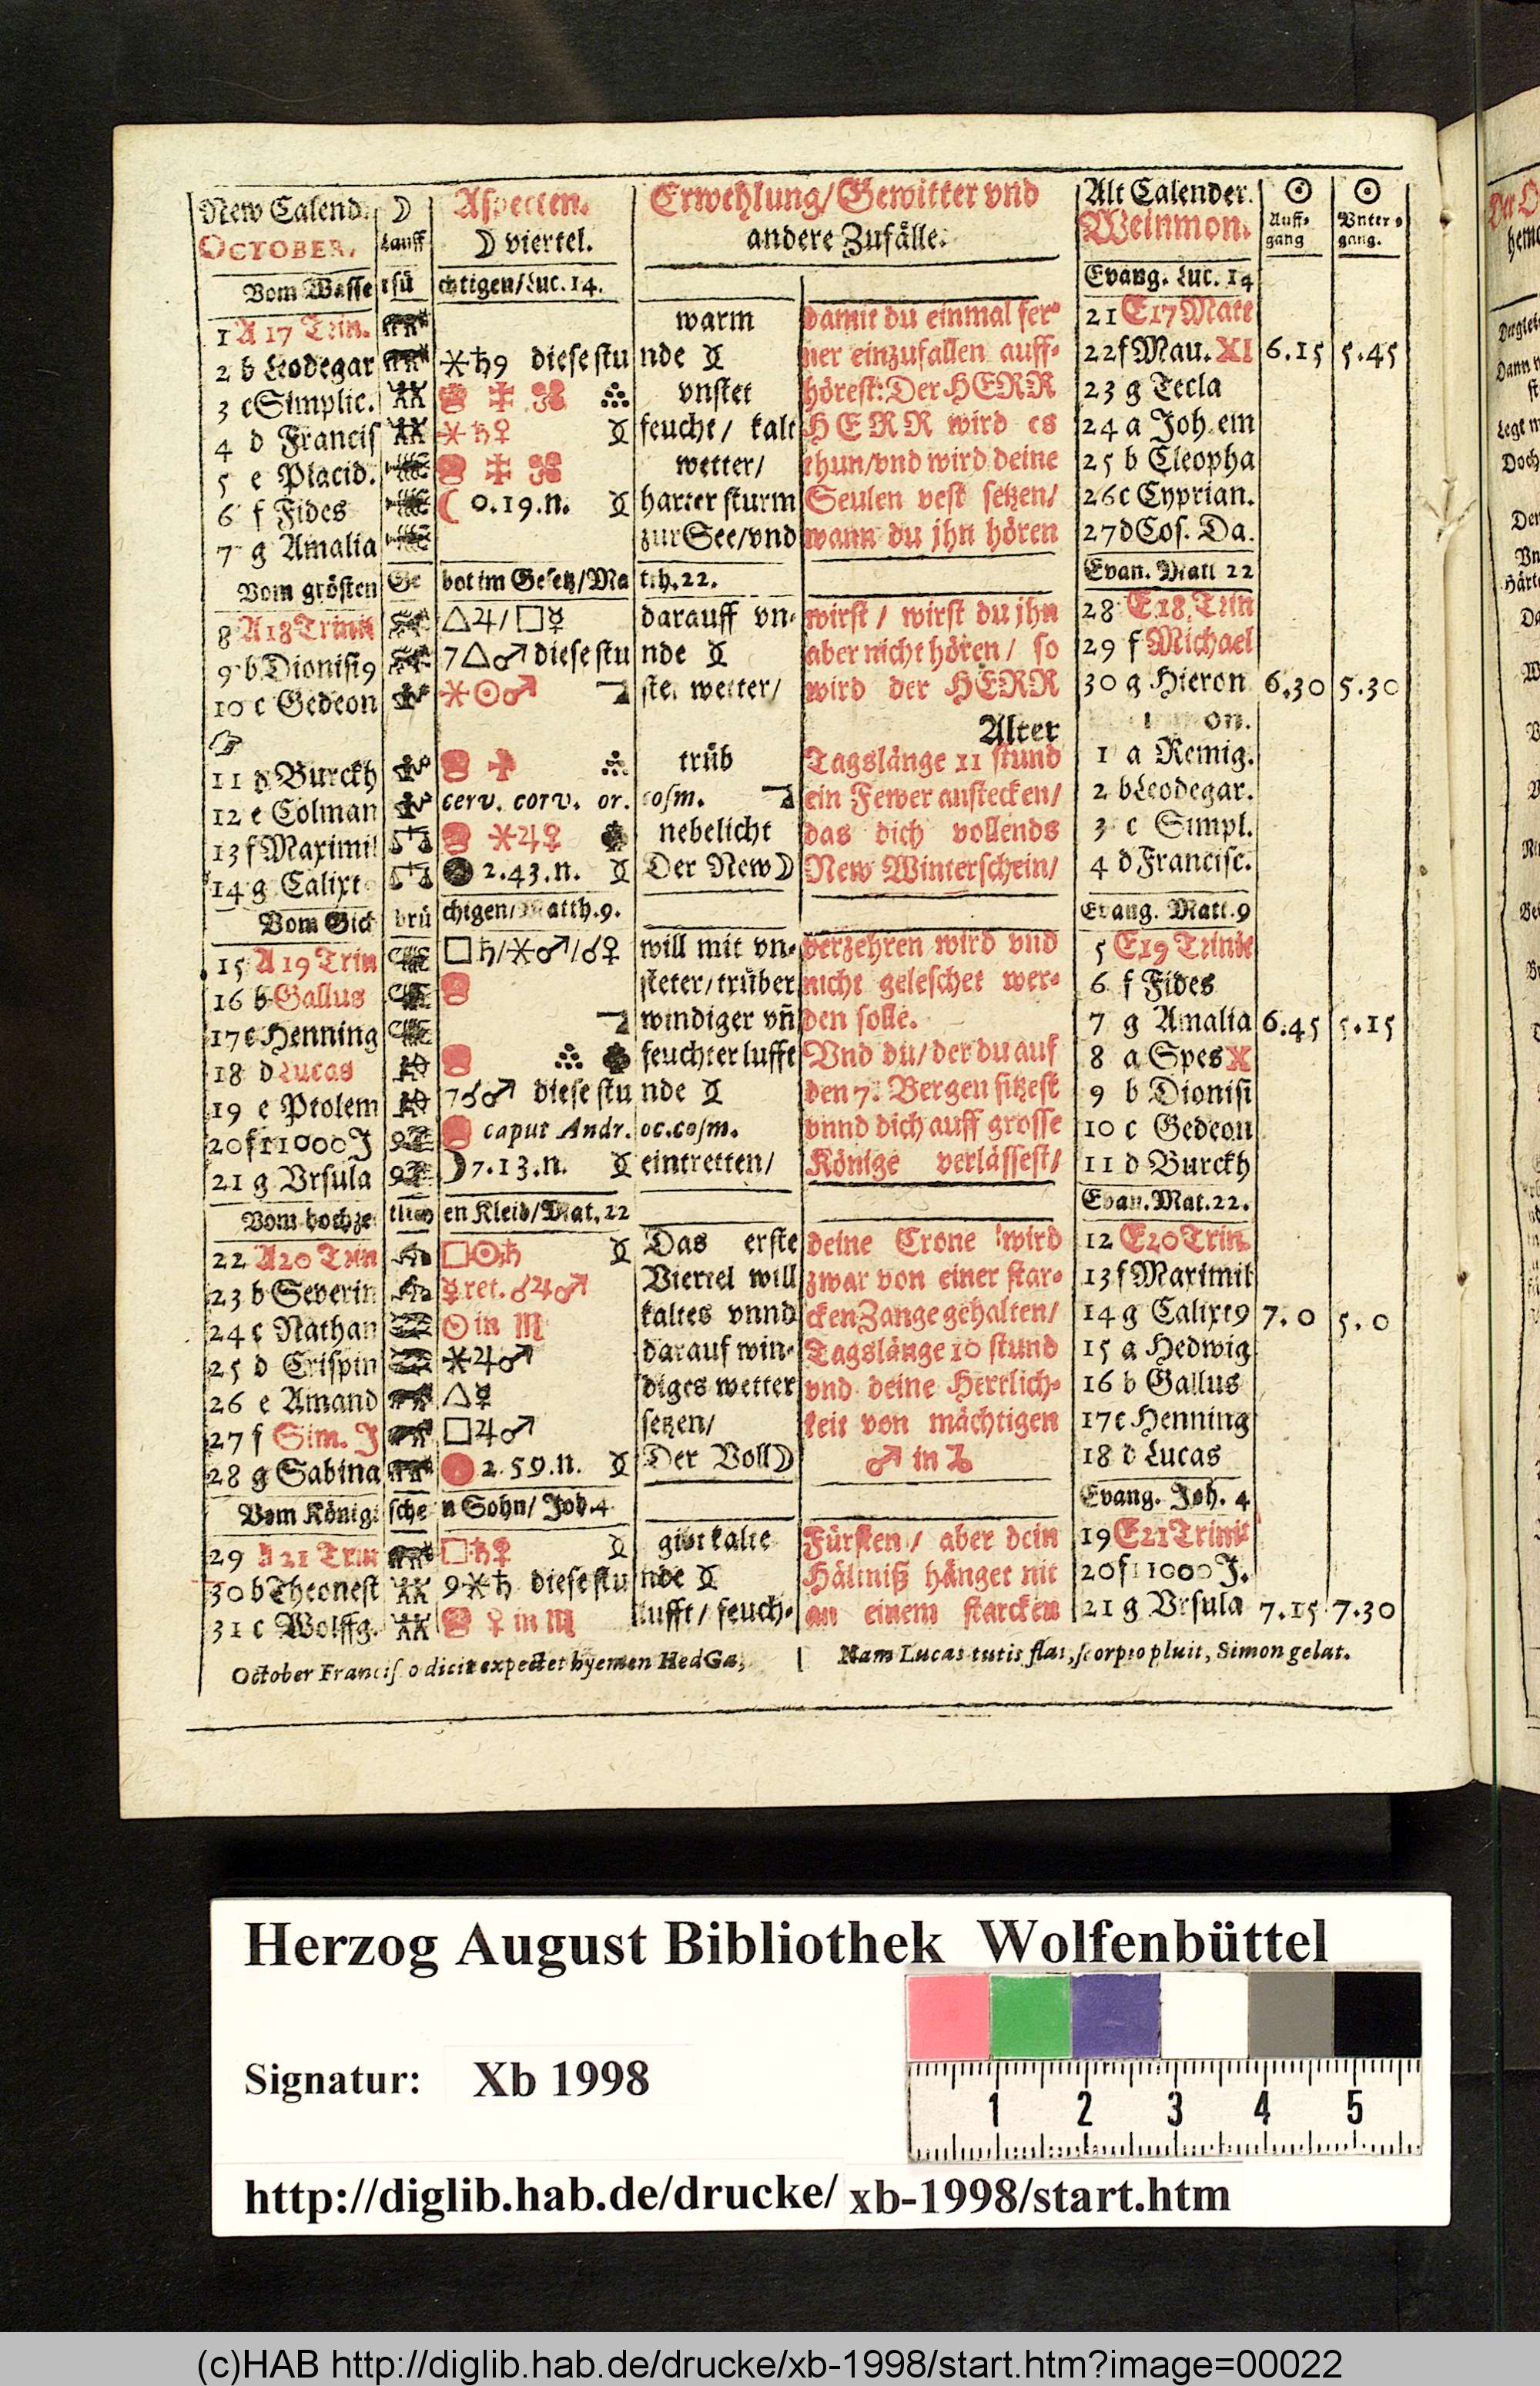 New Calend. ☽ Aspecten. Erwehlung/Gewitter vnd Alt Calender. ☉ ☉
OCTOBER. Lauff ☽ viertel. andere Zufälle. Weinmon. Auff⸗gang Vnter⸗gang.
Vom Wasse rsü chtigen/Luc. 14. Evang. Luc. 14
1 A 17 Trin. warm damit du einmal fer⸗ 21 E 17 Matt
2 b Leodegar ⚹♄9 diese stu nde ner einzufallen auff⸗ 22 f Mau. XI 6.15 5.45
3 c Simplic. vnstet hörest: Der HERR 23 g Tecla
4 d Francis ⚹♄♀ feucht/ kalt HERR wird es 24 a Joh. em
5 e Placid. wetter/ thun/vnd wird deine 25 b Cleopha
6 f Fides ☾ 0.19.n. harter sturm Seulen vest setzen/ 26 c Cyprian.
7 g Amalia zur See/vnd wann du jhn hören 27 d Cos. Da.
Vom grösten Ge bot im Gesetz/Ma tth. 22. Evan. Matt 22
8 A 18 Trinit △♃/□☿ darauff vn⸗ wirst / wirst du jhn 28 E 18. Trin
9 b Dionisi9 7△♂ diese stu nde aber nicht hören / so 29 f Michael
10 c Gedeon ⚹☉♂ stet wetter/ wird der HERR 30 g Hieron 6.30 5.30
☞ Alter on.
11 d Burckh trüb Tagslänge 11 stund 1 a Remig.
12 e Colman cerv. corv. or. cosm. ein Fewer anstecken/ 2 b Leodegar.
13 f Maximil ⚹♃♀ nebelicht das dich vollends 3 c Simpl.
14 g Calixt 2.43.n. Der New☽ New Winterschein/ 4 d Francisc.
Vom Gick brü chtgen/Matth. 9. Evang. Matt. 9
15 A 19 Trin □♄/⚹♂/☌♀ will mit vn⸗ verzehren wird vnd 5 E 19 Trinit
16 b Gallus steter/trüber nicht geleschet wer⸗ 6 f Fides
17 c Henning windiger vn̄ den solle. 7 g Amalia 6.45 5.15
18 d Lucas feuchter lufft Vnd du/ der du auf 8 a Spes X
19 e Ptolem 7☌♂ diese stu nde den 7. Bergen sitzest 9 b Dionisi
20 f 11000 J caput Andr. oc. cosm. vnnd dich auff grosse 10 c Gedeon
21 g Vrsula ☽ 7.13.n. eintretten/ Könige verlässest/ 11 d Burckh
Vom hochze itlich en Kleid/Mat. 22 Evan. Mat. 22.
22 A 20 Trin □☉♄ Das erste deine Crone wird 12 E 20 Trin.
23 b Severin ☿ ret. ☌♃♂ Viertel will zwar von einer star⸗ 13 f Maximil
24 c Nathan ☉ in ♏ kaltes vnnd cken Zange gehalten/ 14 g Calixt9 7.0 5.0
25 d Crispin ⚹♃♂ darauf win⸗ Tagslänge 10 stund 15 a Hedwig
26 e Amand △☿ diges wetter vnd deine Herrlich⸗ 16 b Gallus
27 f Sim. J □♃♂ setzen/ keit von mächtigen 17 c Henning
28 g Sabina 2.59.n. Der Voll☽ ♂ in ♑ 18 d Lucas
Vom Königi sche n Sohn/ Joh. 4 Evang. Joh. 4
29 A 21 Trin □♄♀ gibt kalte Fürsten / aber dein 19 E 21 Trinit
30 b Theonest 9⚹♄ diese stu nde Hältniß hänget nit 20 f 11000 J.
31 c Wolffg. ♀ in ♏ lufft/ feuch⸗ an einem starcken 21 g Vrsula 7.15 7.30
October Francisco dicit expectet hyemen HedGa, Nam Lucas tutis flat, scorpio pluit, Simon gelat.
Herzog August Bibliothek Wolfenbüttel
Signatur: Xb 1998
1 2 3 4 5
http://diglib.hab.de/drucke/ xb-1998/start.htm
(c)HAB http://diglib.hab.de/drucke/xb-1998/start.htm?image=00022